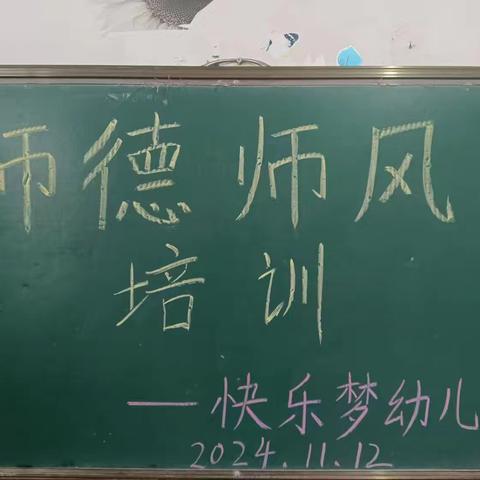 师德师风
培训
—快乐梦幼儿
2024.11.12